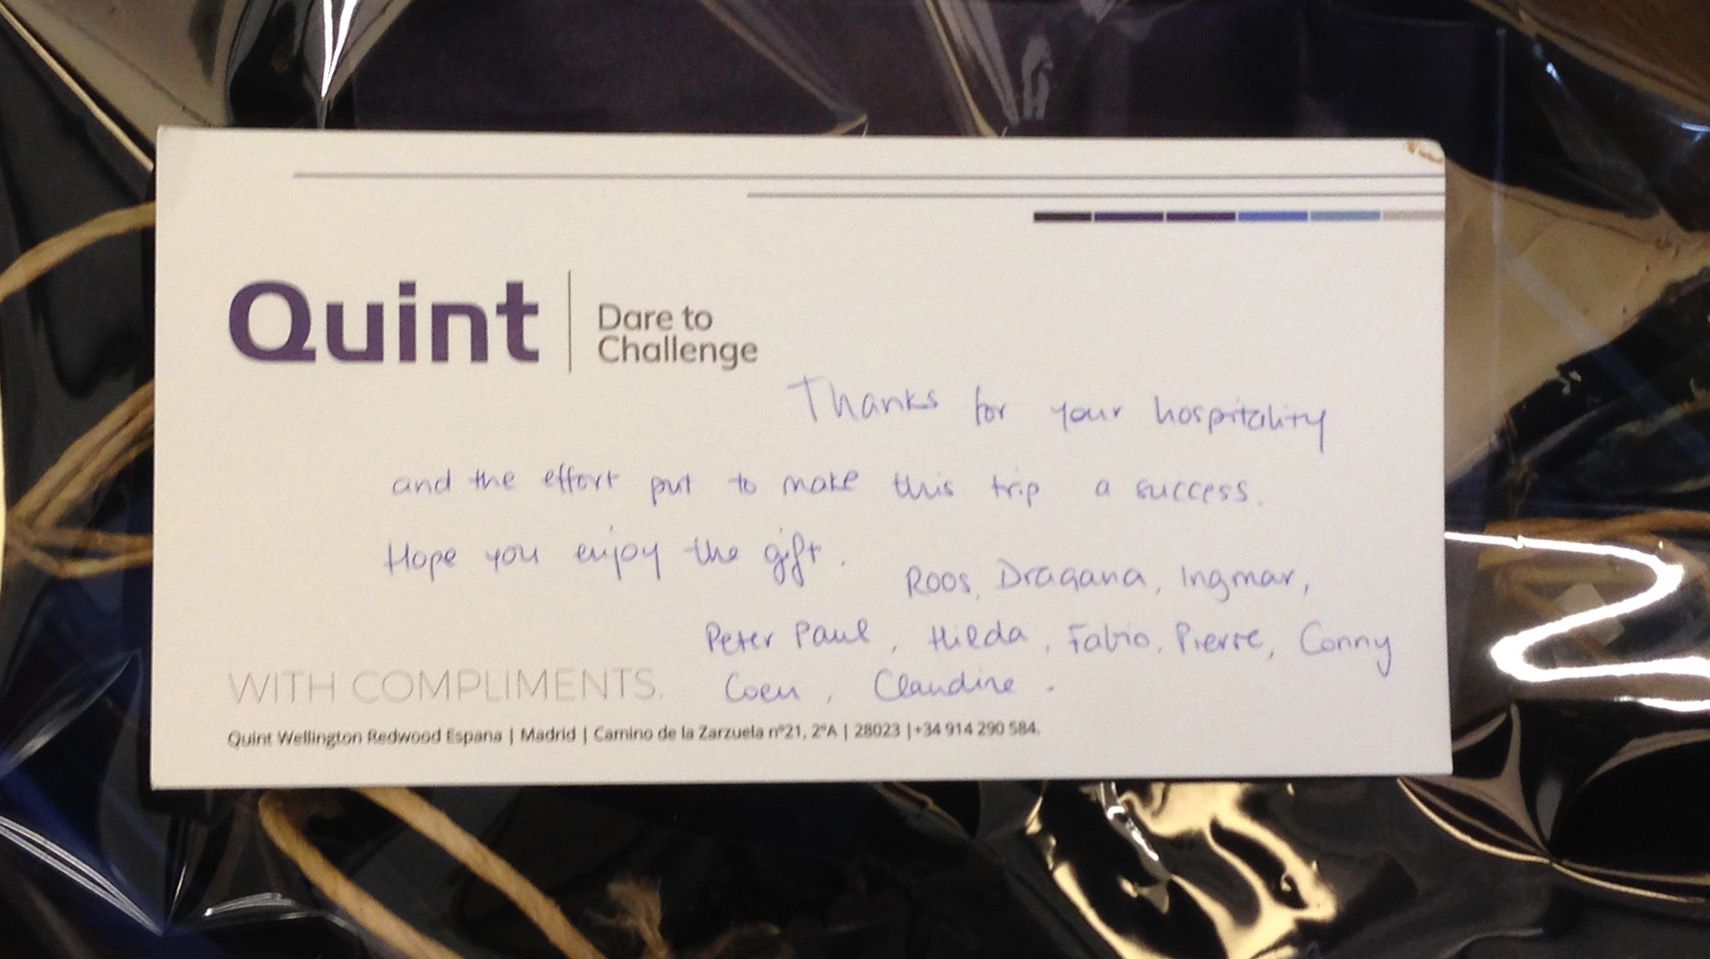 Quint
Dare to
Challenge
Thanks for your hospitality
and the effort put to make this trip a success.
Hope you enjoy the gift.
Roos, Dragana, Ingmar,
Peter Paul, Hilda, Fabio, Pierre, Conny
Coen, Claudine.
WITH COMPLIMENTS.
Quint Wellington Redwood Espana | Madrid | Camino de la Zarzuela nº21, 2ºA | 28023 | +34 914 290 584.